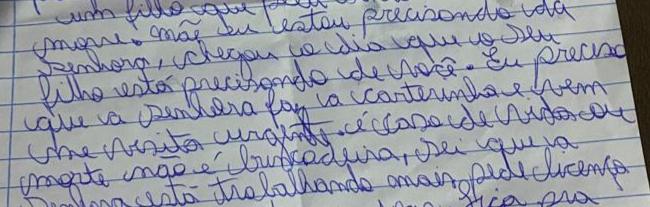 um filho que
morre. mãe eu estou precisando da
Senhora, chegou o dia que o seu
filho está precisando de você. Eu preciso
que a Senhora faz a carteirinha e vem
me visita urgente. é caso de vida ou
morte não é brincadeira, sei que a
Senhora está trabalhando mais pede licença
pra